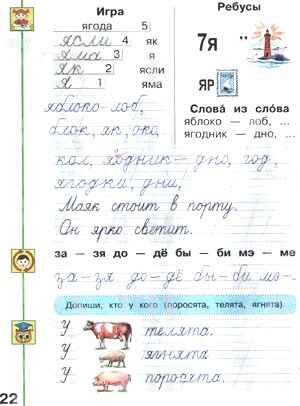 Игра
ягода 5
ясли 4 як
яма 3 я
як 2 ясли
я 1 яма
Ребусы
7я "
ЯР
Слова́ из сло́ва
яблоко – лоб, ...
ягодник – дно, ...
яблоко – лоб,
блок, як, око,
кол, ягодник – дно, год,
ягодки, дни,
Маяк стоит в порту.
Он ярко светит.
за – зя до – дё бы – би мэ – ме
за – зя до – дё бы – би мэ –
Допиши, кто у кого (поросята, телята, ягнята).
У телята.
У ягнята
У поросята.
22